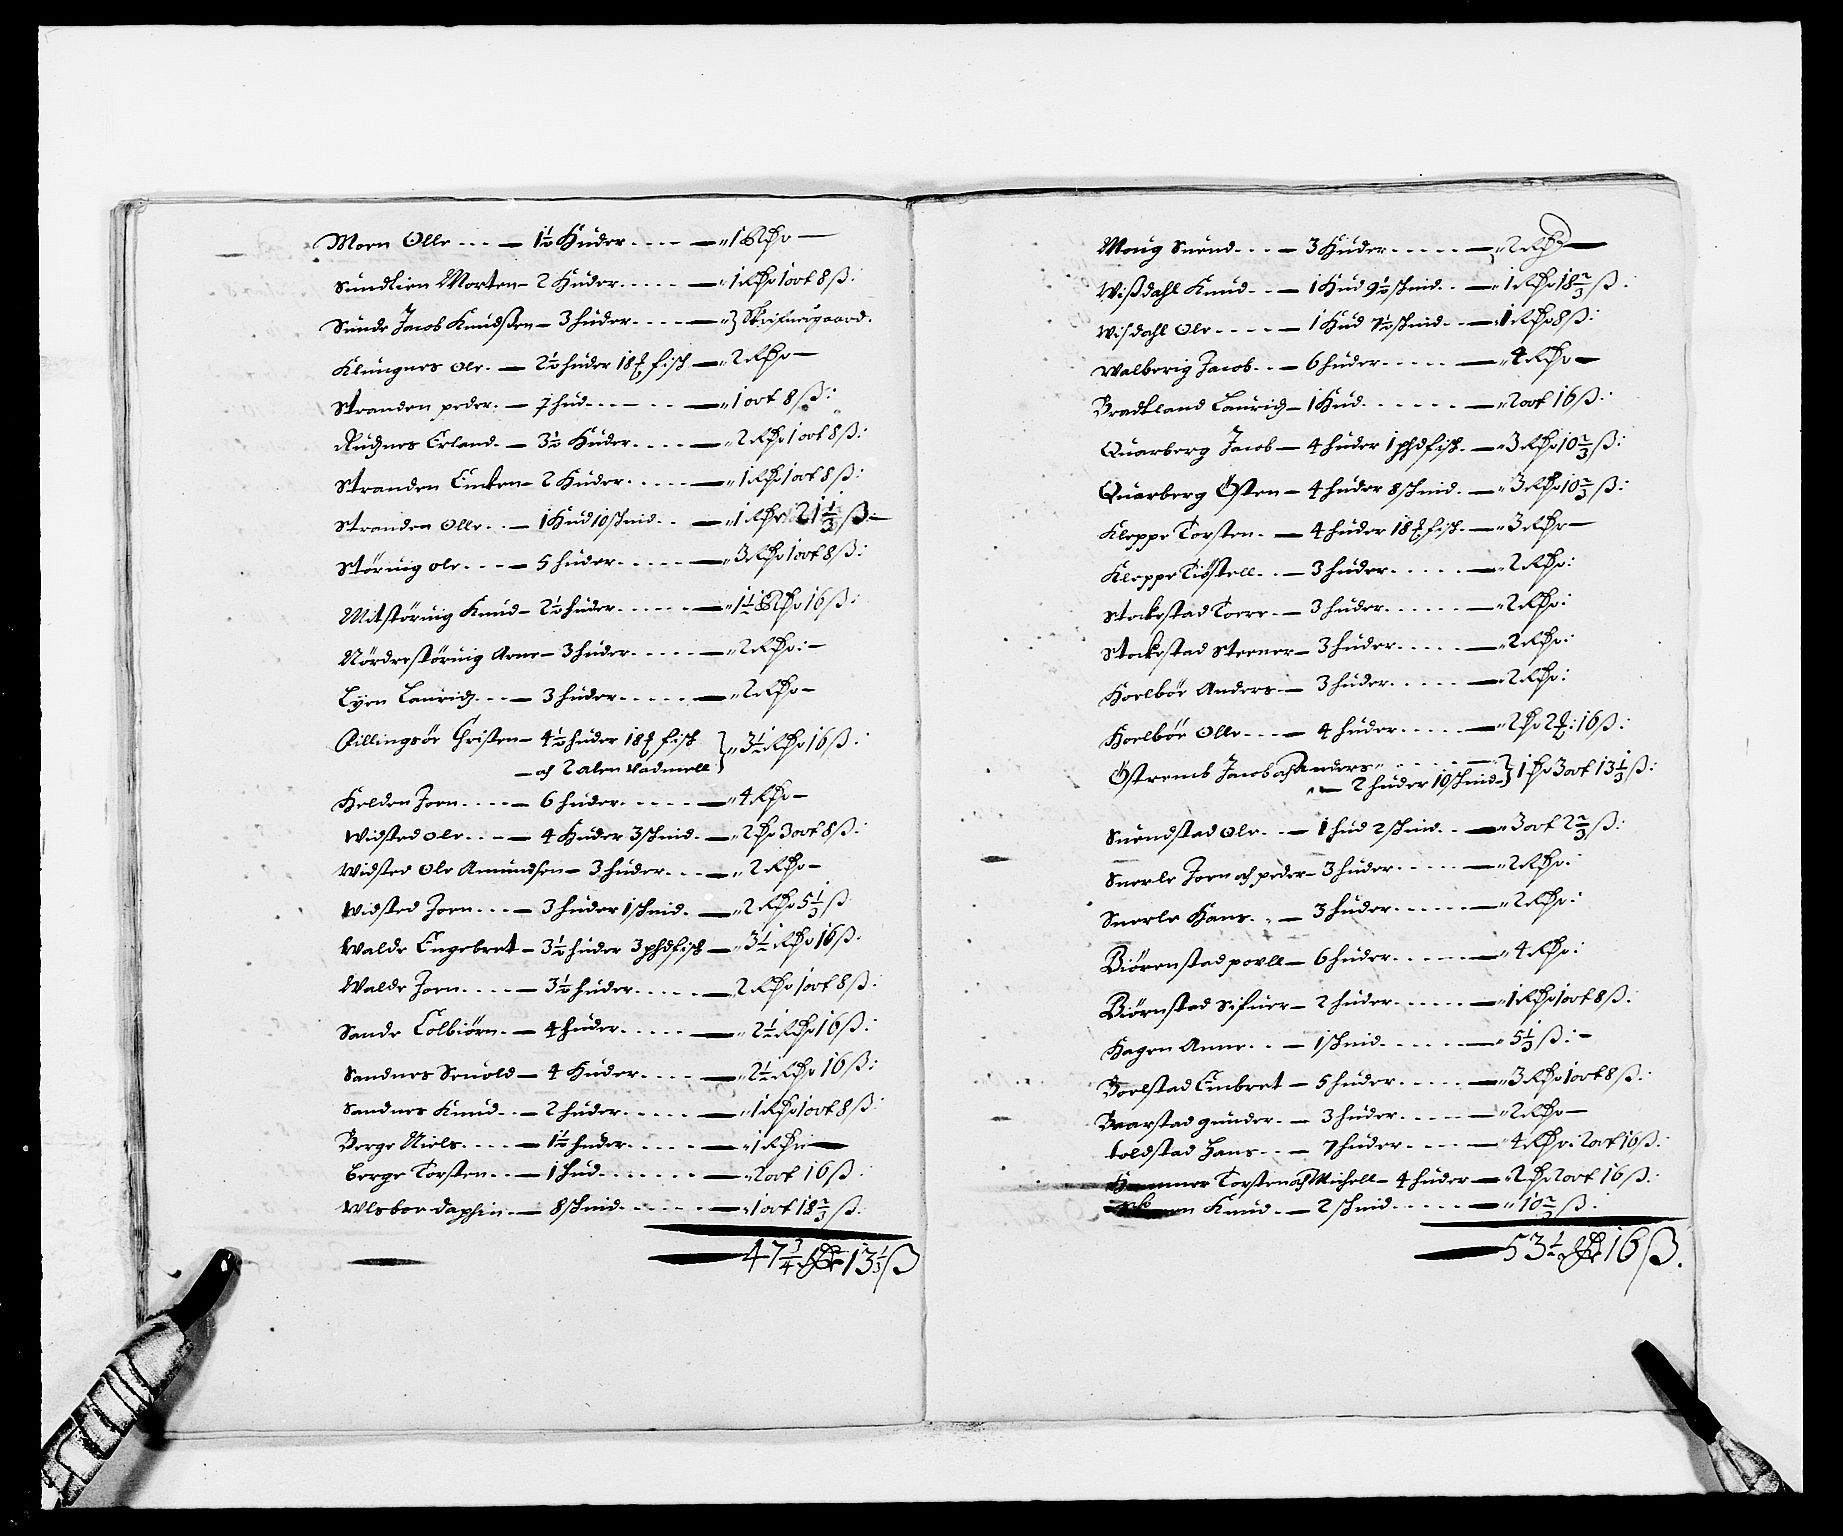 Moen Olle - - - 1½ Huder - - - „1 Rdr –
Sundlien Morten – 2 Huder - - - „1 Rdr 1 ort 8 ß:
Sunde Jacob Knudssen – 3 huder - - - „3 Skrifuergaard.
Klungnes Ole. – 2½ huder 18 ℔ fisk – „2 Rdr –
Stranden peder. – ½ hud - - - „1 ort 8 ß:
Rudnes Erland. – 3½ Huder - - - „2 Rdr 1 ort 8 ß:
Stranden – 2 Huder - - - „1 Rdr 1 ort 8 ß:
Stranden Olle - - – 1 Hud 10 schind - - „1 Rdr 21⅓ ß –
Störuig ole - - - 5 huder - - - „3 Rdr 1 ort 8 ß:
Mitstöruig Knud – 2½ huder - - - „1½ Rdr 16 ß:
Nördrestöruig Arne – 3 huder - - - „2 Rdr: –
Lyen Lauridz - - – 3 huder - - - „2 Rdr –
Christen – 4½ huder 18 ℔ fisk
– och 2 alen Vadmell } „3½ Rdr 16 ß:
Helden Joen - - - 6 huder - - - „4 Rdr –
Widsted Ole - - - 4 Huder 3 schind. – „2 dr 3 ort 8 ß:
Widsted Ole Amundsen – 3 huder - - - „2 Rdr –
Widsted Joen - - - 3 huder 1 schind. – „2 Rdr 5⅓ ß
Walde Engebret – 3½ huder 3 phd fisk – „3½ Rdr 16 ß:
Walde Joen - - - 3½ huder - - - 2 Rdr 1 ort 8 ß:
Sande Colbiörn. – 4 huder - - - „2½ Rdr 16 ß:
Sandnes Seuold – 4 Huder - - - „2½ Rdr 16 ß:
Sandnes Knud - - 2 huder - - - „1 Rdr 1 ort 8 ß:
Berge Niels - - - 1½ huder - - - „1 Rdr –
Berge Torsten - - 1 hud - - - „2 ort 16 ß:
Wlsboe - – 8 schind - - - „1 ort 18⅔ ß:
47¾ Rdr 13⅓ ß
Moug Suend - - – 3 Huder - - - „2 Rdr –
Wissdahl Knud - - 1 Hud 9½ schind - - „1 Rdr 18⅔ ß:
Wisdahl Ole - - - 1 Hud 7½ schind - - „1 Rdr 8 ß:
Walberig Jacob - - 6 huder - - - „4 Rdr –
Bradtland Lauridz – 1 Hud - - - „2 ort 16 ß:
Quarberg Jacob – 4 huder 1 phd fisk. – „3 Rdr 10⅔ ß:
Quarberg Östen – 4 huder 8 schind. – „3 Rdr 10⅔ ß:
Kleppe Torsten. – 4 huder 18 ℔ fisk. – „3 Rdr –
Kleppe - - 3 huder - - - „2 Rdr:
Stockestad Tore - – 3 huder - - - „2 Rdr:
Stockestad Steener – 3 huder - - - „2 Rdr:
Hoelböe Anders – 3 huder - - - „2 Rdr:
Hoelböe Olle - - - 4 huder - - - „2 dr 2 : 16 ß:
Östremb Jacob och Anders - - -
– 2 huder 10 schind } 1 dr 3 ort 13⅓ ß:
Suendstad Ole - - 1 hud 2 schind - - „3 ort 2⅔ ß:
Snerle Joen och peder – 3 huder - - - „2 Rdr:
Snerle Hans - - 3 huder - - - „2 Rdr:
Biörenstad povll – 6 huder - - - „4 Rdr:
Biörnstad Sifuer – 2 huder - - - „1 Rdr 1 ort 8 ß:
Hagen Anne - - - 1 schind - - - „5⅓ ß: –
Boelstad Embret – 5 huder - - - „3 Rdr 1 ort 8 ß:
Baarstad gunder - – 3 huder - - - „2 Rdr –
Toldstad Hans - - - 7 huder - - - „4 Rdr. 2 ort 16 ß:
Hammer Torsten och Michell – 4 huder – „2 dr 2 ort 16 ß:
Knud - – 2 schind - - - „10⅔ ß:
53½ Rdr 16 ß.